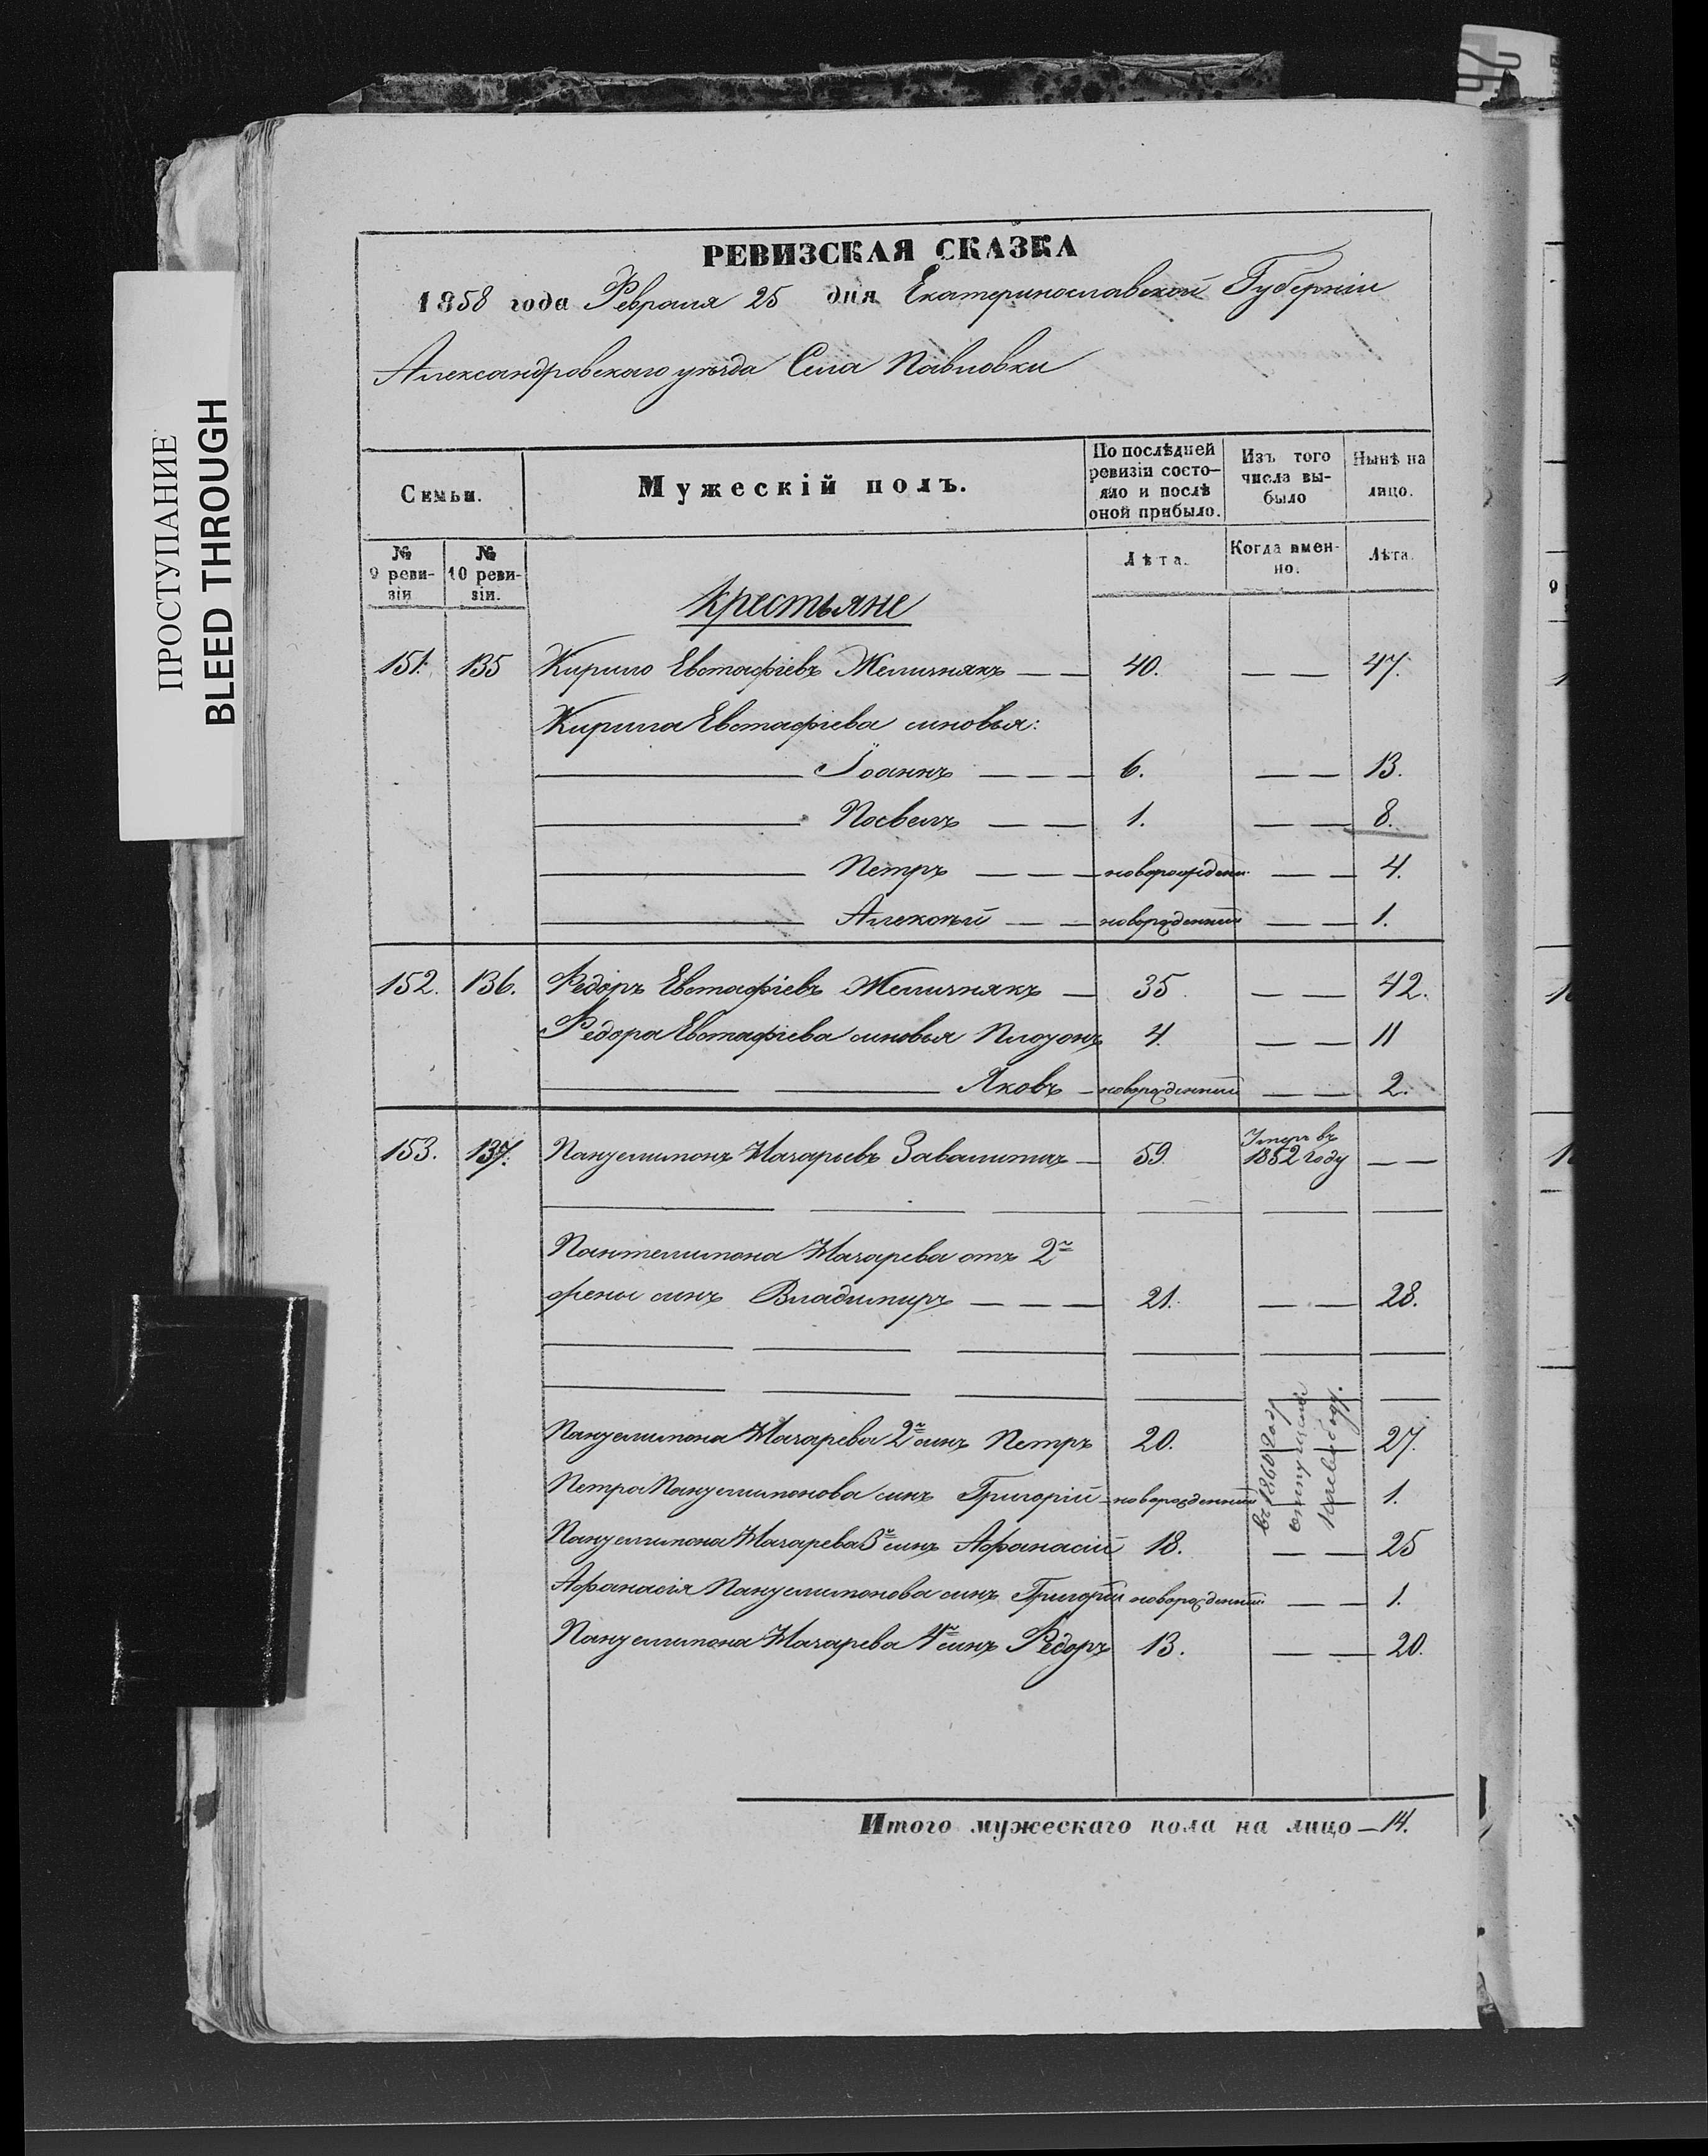 ПРОСТУПАНИЕ
BLEED THROUGH
РЕВИЗСКАЯ СКАЗКА
1858 года Февраля 25 дня Екатеринославской Губерніи
Александровскаго уѣзда Села Павловки
Семьи.
Мужескій полъ.
По послѣдней ревизіи состояло и послѣ оной прибыло.
Изъ того числа выбыло
Нынѣ на лицо.
№ 9 ревизіи
№ 10 ревизіи.
Лѣта.
Когда имен-но.
Лѣта.
Крестьяне
151. 135 Кирило Евстафіевъ Желизнякъ — — 40. — — 47.
Кирила Евстафіева синовья:
Іоаннъ — — — 6. — — 13.
Павелъ — — 1. — — 8.
Петръ — — — новорожден. — — 4.
Алексѣй — — новорожденный — — 1.
152. 136. Федоръ Евстафіевъ Желизнякъ — 35 — — 42.
Федора Евстафіева синовья Плаѳонъ 4. — — 11
Яковъ — новорожденный — — 2.
153. 137. Панѳелимонъ Назарьевъ 59. Умеръ въ 1852 году — —
Пантелимона Назарева отъ 2й
жены синъ Владимиръ — — — 21. — — 28.
Панѳелимона Назарева 2й синъ Петръ 20. 27.
Петра Панѳелимонова синъ Григорій — новорожденный 1.
въ 1860 году
Панѳелимона Назарева 3й синъ Афанасій 18. — — 25
Афанасія Панѳелимонова синъ Григорій новорожденный — — 1.
Панѳелимона Назарева 4й синъ Федоръ 13. — — 20.
Итого мужескаго пола на лицо — 14.
9